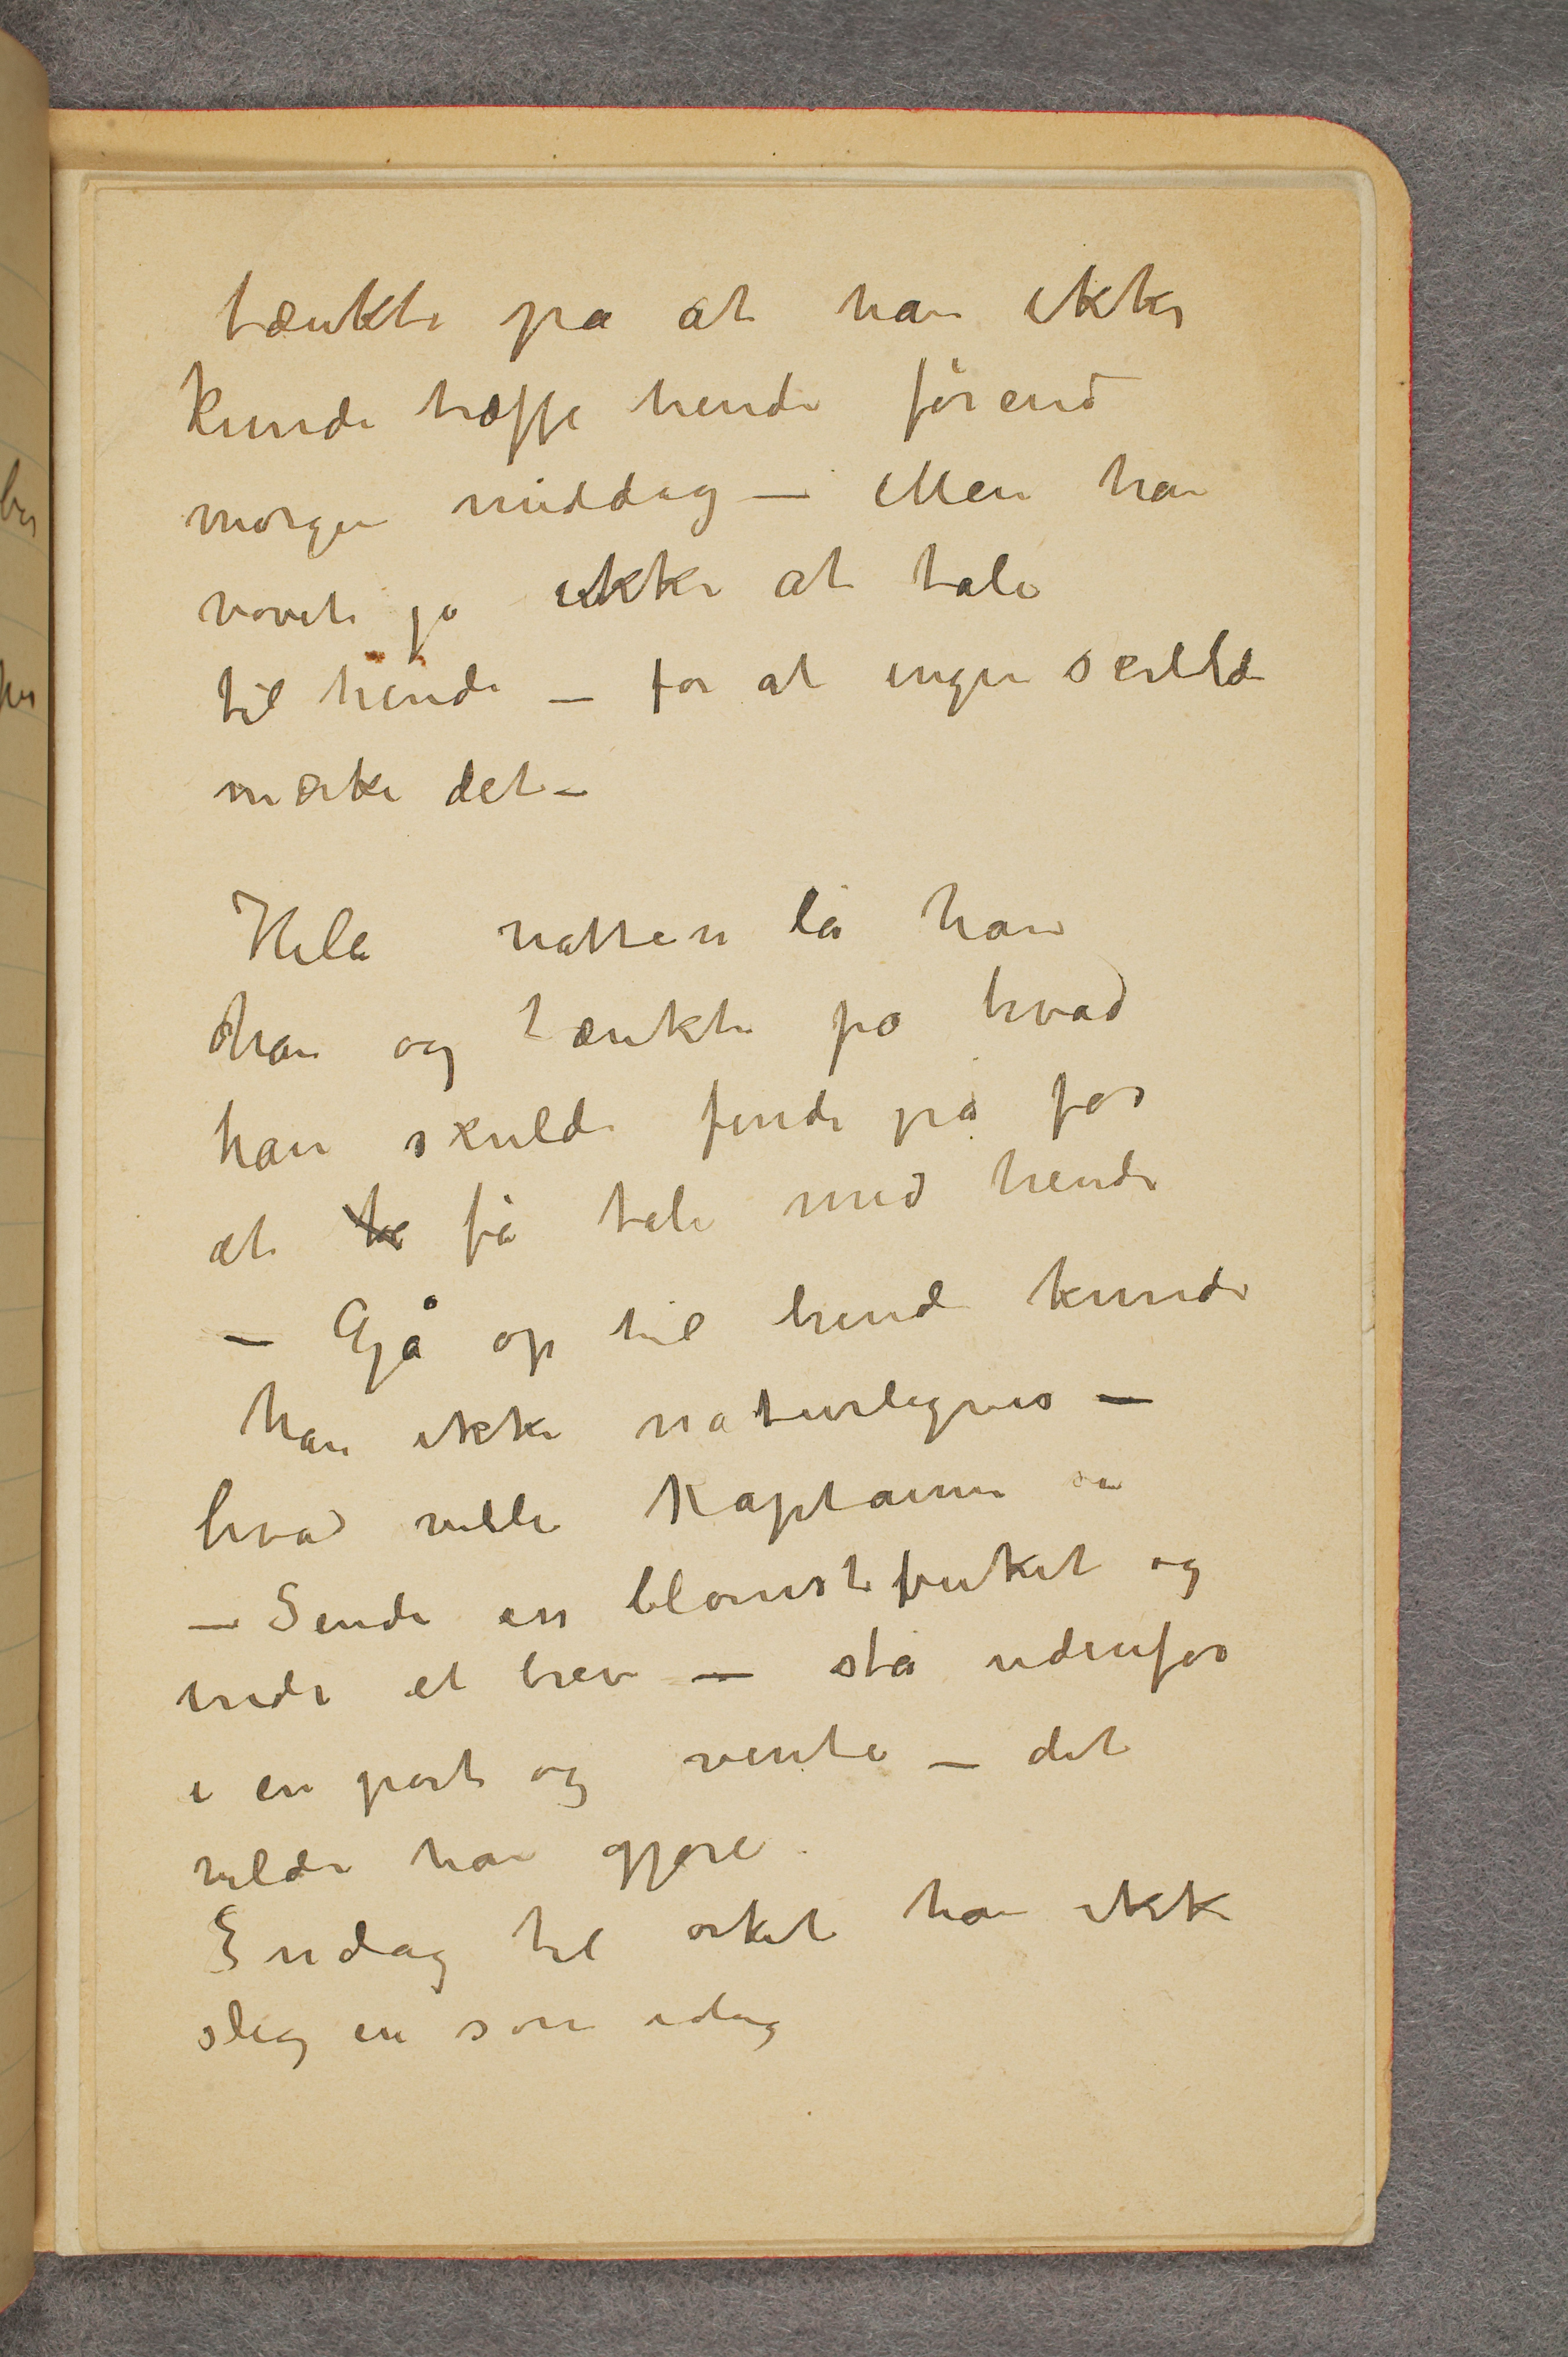 tænkte på at han ikke
kunde træffe hende förend
morgen middag – Men han
vovet jo ikke at tale
til hende – for at ingen skulde
mærke det –
Hele natten lå han
han og tænkte på hvad
han skulde finde på for
at få tale med hende
– Gå op til hende kunde
han ikke naturligvis –
hvad vilde Kaptainen sa
– Sende en blomsterbuket og
inde et brev – stå udenfor
i en port og vente – det
vilde han gjøre.
En dag til orket han ikke
slig en som idag